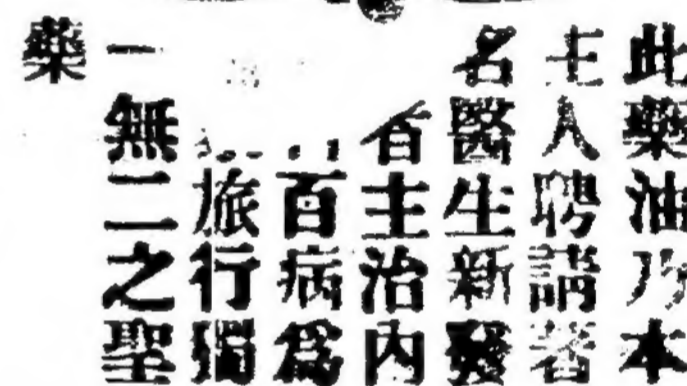 此藥油乃本
主人聘請著
名醫生新發
者主治內
百病爲
旅行獨
一無二之聖
藥